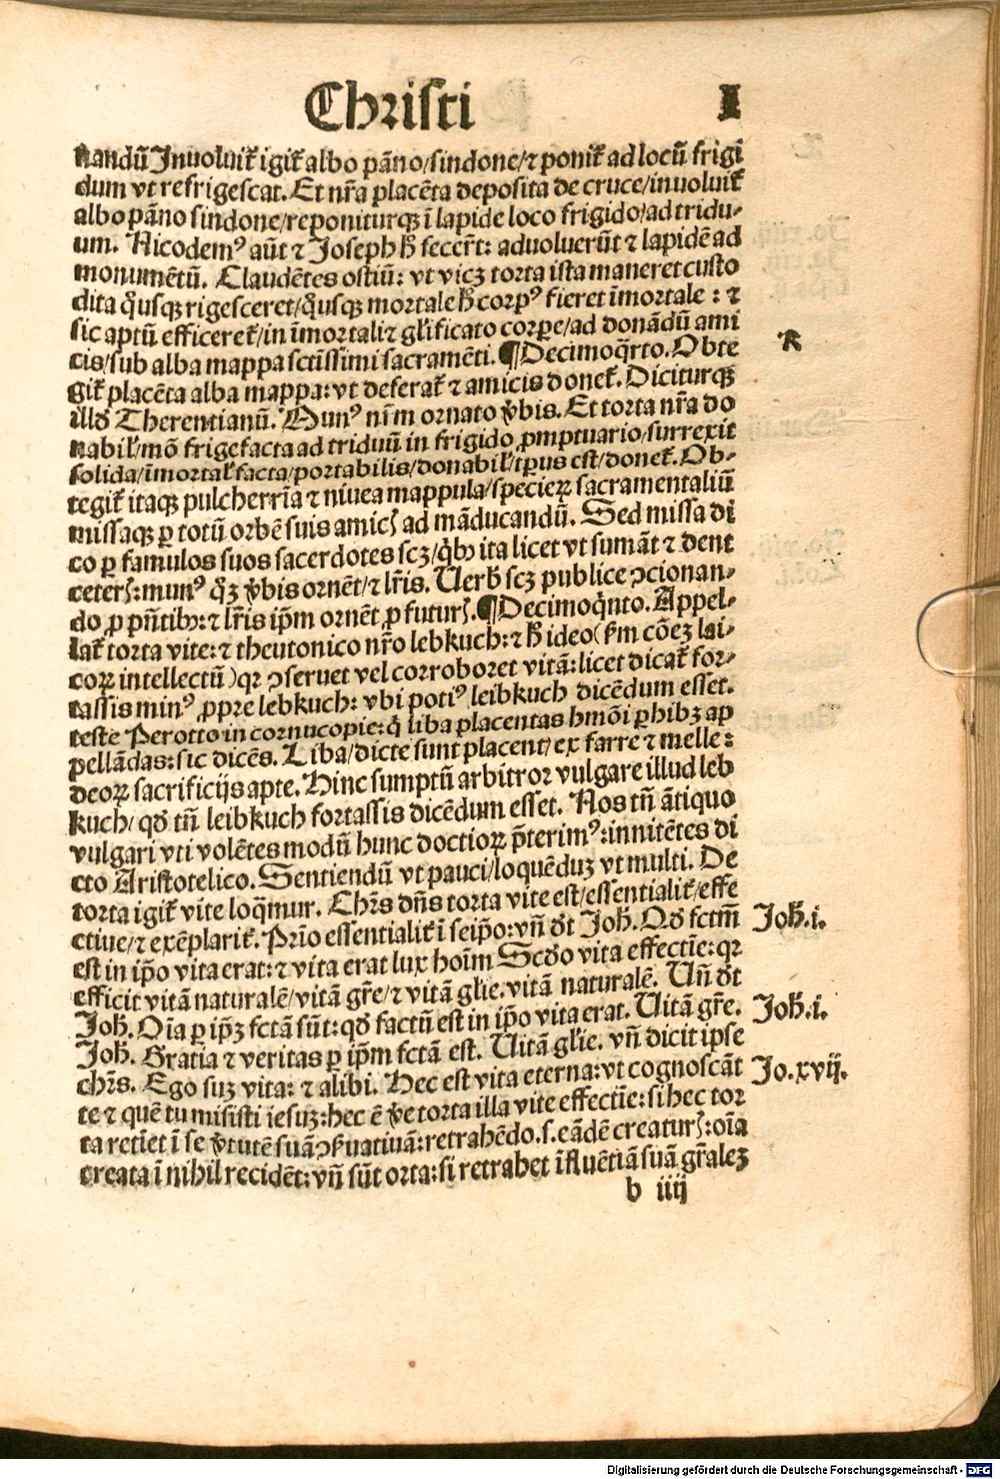 Christi I
nandū Inuoluit᷑ igit᷑ albo pāno/sindone/⁊ ponit᷑ ad locū frigi
dum vt refrigescat. Et nr̄a placēta deposita de cruce/inuoluit᷑
albo pāno sindone/reponiturqꝫ ī lapide loco frigido/ad tridu-
um. Nicodemꝰ aūt ⁊ Joseph h̄ fecer̄t: aduoluerūt ⁊ lapidē ad
monumētū. Claudētes ostiū: vt vicꝫ torta ista maneret custo
dita q̄usqꝫ rigesceret/q̄usqꝫ mortale h̄ corpꝰ fieret īmortale: ⁊
sic aptū efficeret᷑/in īmortali ⁊ gl̄ificato corpꝑe/ad donādū ami
cis/sub alba mappa sctīssimi sacramēti. ¶ Decimoq̄rto. Obte
git᷑ placēta alba mappa: vt deferat᷑ ⁊ amicis donet᷑. Diciturqꝫ
illud̄ Therentianū. Munꝰ nr̄m ornato v̄bis. Et torta nr̄a do
nabil̄/mō frigefacta ad triduū in frigido ꝓmptuario/surrexit
solida/īmortal̄ facta/portabilis/donabil̄/tꝑus est/donet᷑. Ob-
tegit᷑ itaqꝫ pulcherr̄ia ⁊ niuea mappula/specieꝝ sacramentaliū
missaqꝫ ꝑ totū orbē suis amicꝭ ad māducandū. Sed missa di
co ꝑ famulos suos sacerdotes scꝫ/qꝫ ita licet vt sumāt ⁊ dent
ceterꝭ: munꝰ q̄ꝫ v̄bis ornēt/⁊ lr̄is. Verb̄ scꝫ publice ꝯcionan-
do ꝓ pn̄tibꝫ: ⁊ lr̄is ip̄m ornēt ꝓ futurꝭ. ¶ Decimoq̄nto. Appel-
lat᷑ torta vite: ⁊ theutonico nr̄o lebkuch: ⁊ h̄ ideo (ẜm cōeꝫ lai-
coꝝ intellectū) qꝛ ꝯseruet vel corroboret vitā: licet dicat᷑ for-
tassis minꝰ ꝓpre lebkuch: vbi potiꝰ leibkuch dicēdum esset.
teste Perotto in cornucopie: q̄ liba placentas hmōi ꝑhibꝫ ap
pellādas: sic dicēs. Liba/dicte sunt placent/ex farre ⁊ melle:
deoꝝ sacrificijs apte. Hinc sumptū arbitror vulgare illud leb
kuch/qd̄ tn̄ leibkuch fortassis dicēdum esset. Nos tn̄ ātiquo
vulgari vti volētes modū hunc doctioꝝ p̄terimꝰ: innitētes di
cto Aristotelico. Sentiendū vt pauci/loquēduꝫ vt multi. De
torta igit᷑ vite loq̄mur. Chr̄s dn̄s torta vite est/essentialit᷑/effe
ctiue/⁊ exēplarit᷑. Prīo essentialit᷑ ī seip̄o: vn̄ d̄t Joh̄. Qd̄ fctm̄
est in ip̄o vita erat: ⁊ vita erat lux hoīm Scd̄o vita effectīe: qꝛ
efficit vitā naturalē/vitā gr̄e/⁊ vitā gl̄ie. vitā naturalē. Vn̄ d̄t
Joh̄. Oīa ꝑ ip̄ꝫ fctā sūt: qd̄ factū est in ip̄o vita erat. Vitā gr̄e.
Joh̄. Gratia ⁊ veritas ꝑ ip̄m fctā est. Vitā gl̄ie. vn̄ dicit ipse
chr̄s. Ego suꝫ vita: ⁊ alibi. Hec est vita eterna: vt cognoscāt
te ⁊ quē tu misisti iesuꝫ: hec ē v̄e torta illa vite effectīe: si hec tor
ta retīet ī se v̄tutē suā ꝯẜuatiuā: retrahēdo .s. eādē creaturꝭ: oīa
creata ī nihil recidēt: vn̄ sūt orta: si retrahet īfluētiā suā gn̄aleꝫ
b iiij
R
Joh̄. i.
Joh̄. i.
Jo. xvij.
Digitalisierung gefördert durch die Deutsche Forschungsgemeinschaft - DFG